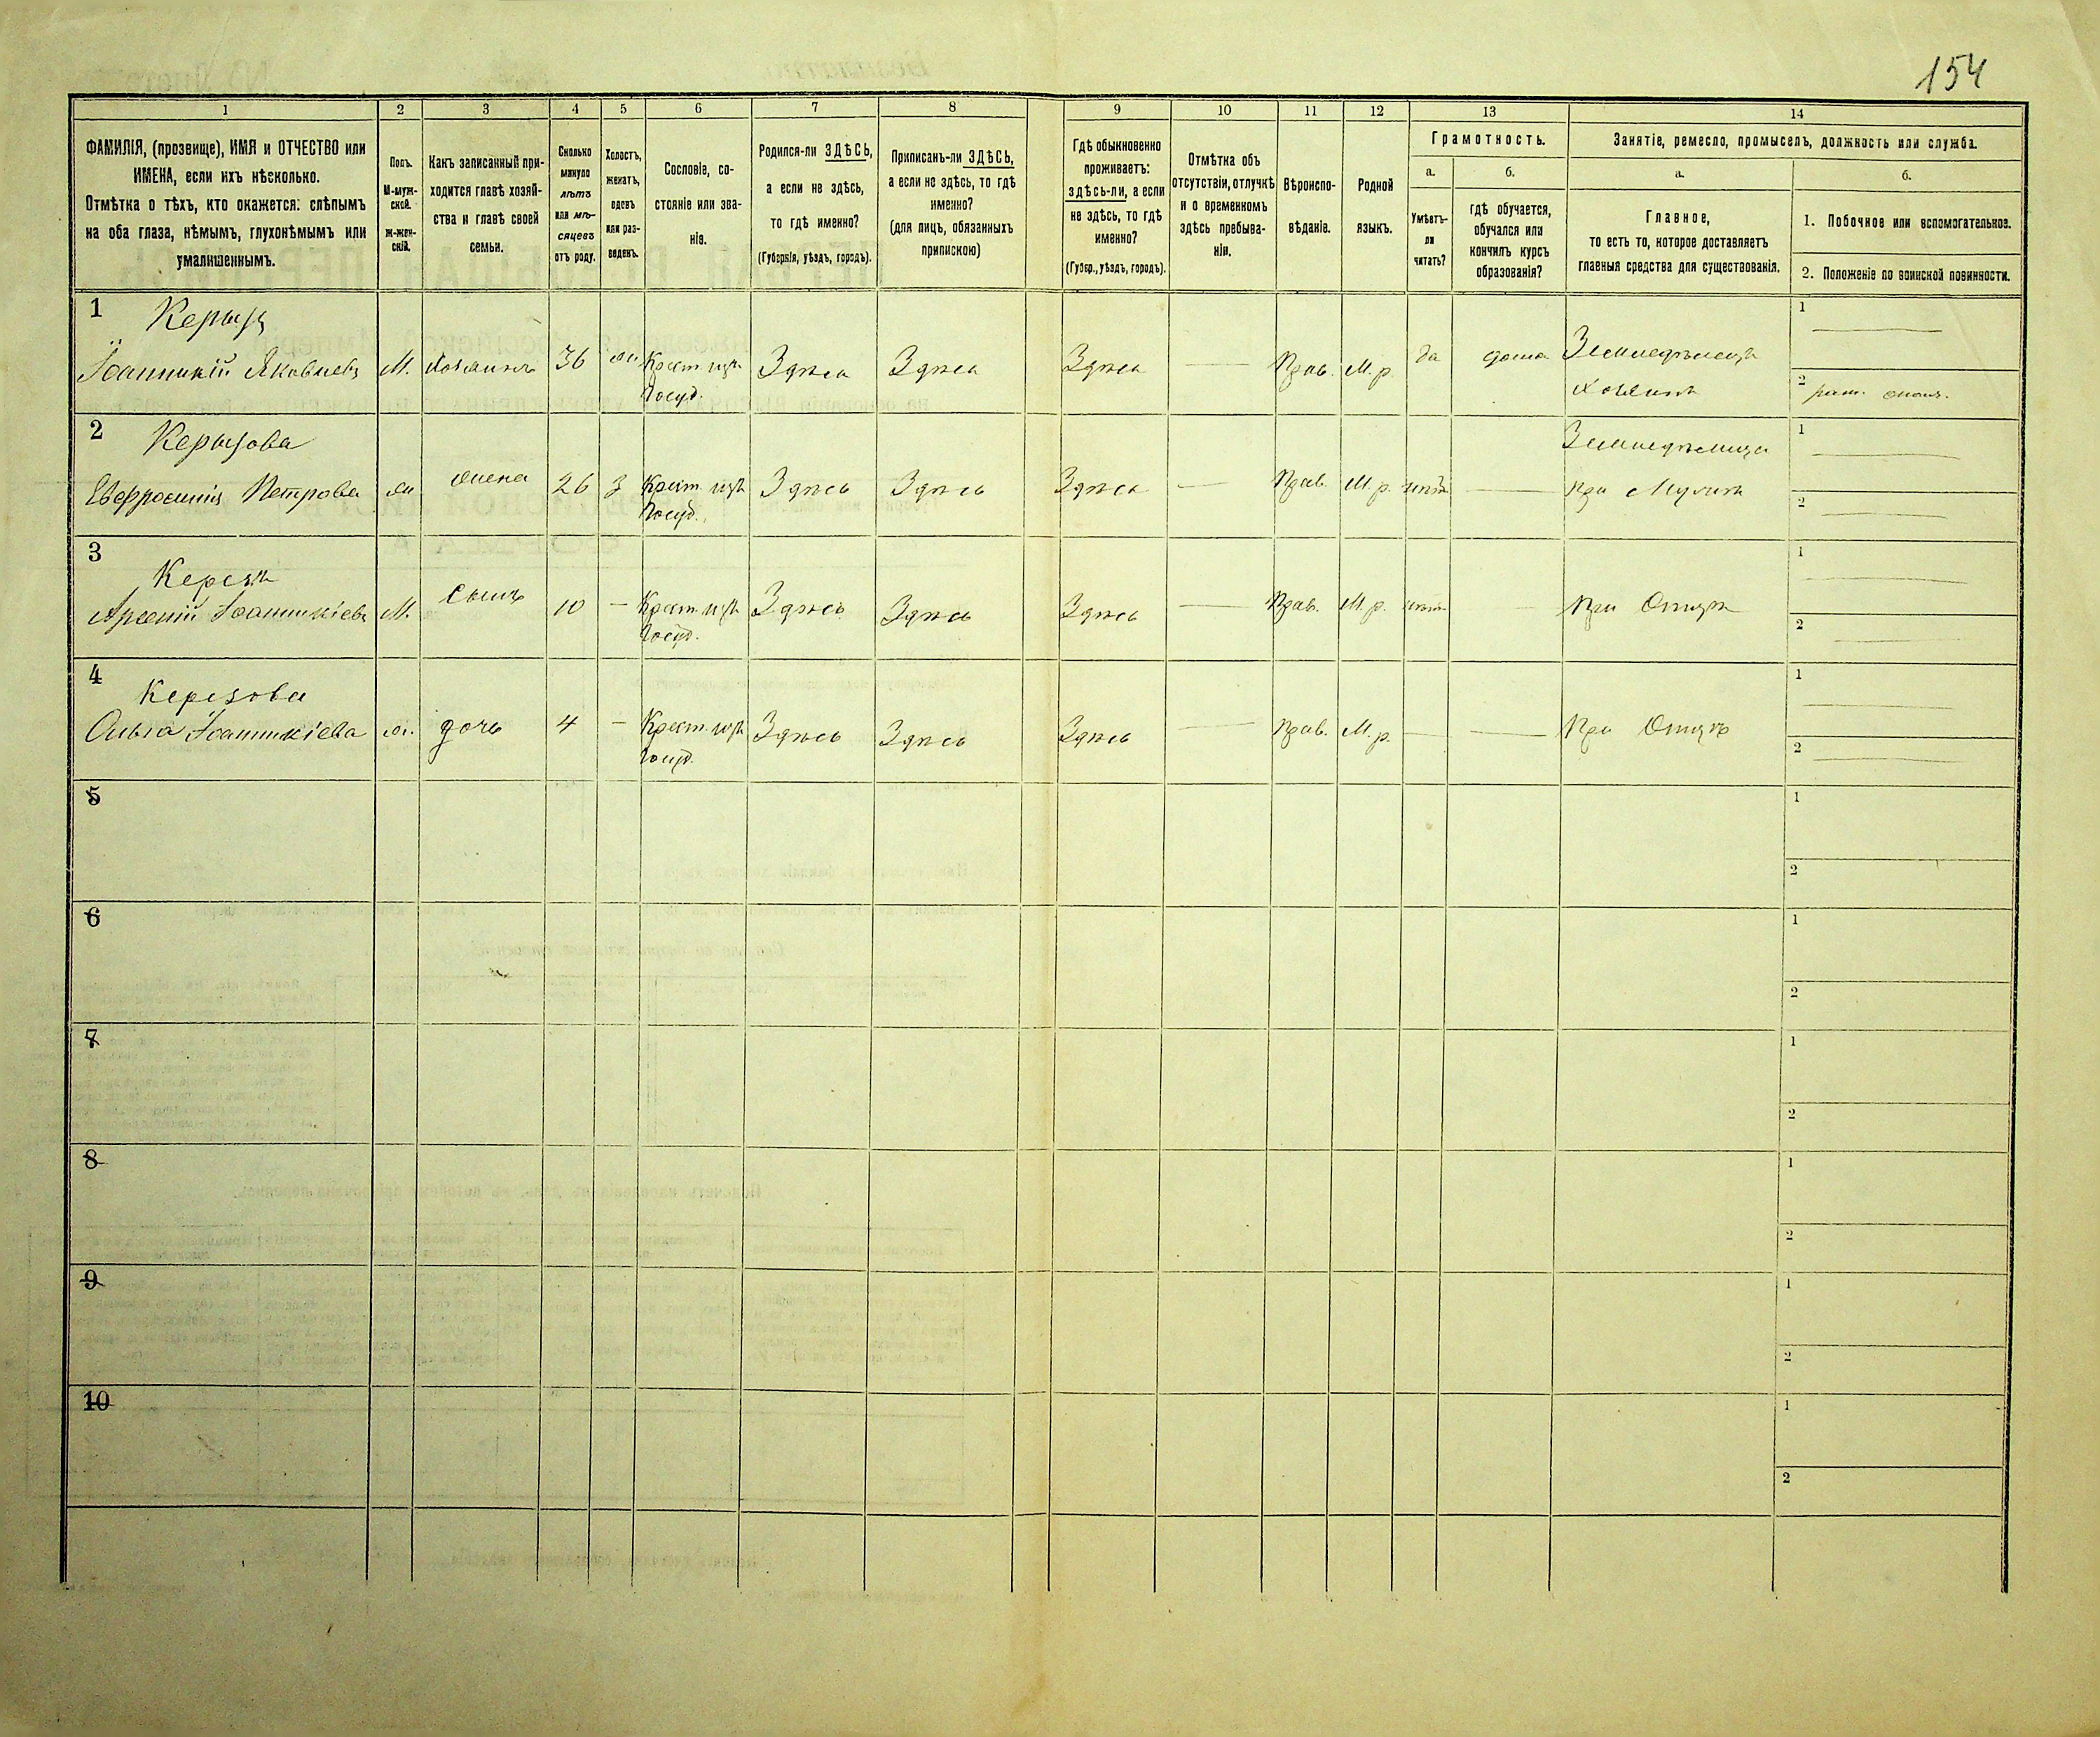 154
1
2
3
4
5
6
7
8
9
10
11
12
13
14
ФАМИЛІЯ, (прозвище), ИМЯ и ОТЧЕСТВО или
ИМЕНА, если ихъ нѣсколько.
Отмѣтка о тѣхъ, кто окажется: слѣпымъ
на оба глаза, нѣмымъ, глухонѣмымъ или
умалишеннымъ.
Полъ.
М-муж-
ской.
Ж-жен-
скій.
Какъ записанный при-
ходится главѣ хозяй-
ства и главѣ своей
семьи.
Сколько
минуло
лѣтъ
или мѣ-
сяцевъ
отъ роду.
Холостъ,
женатъ,
вдовъ
или раз-
веденъ.
Сословіе, со-
стояніе или зва-
ніе.
Родился-ли ЗДѢСЬ,
а если не здѣсь,
то гдѣ именно?
(Губернія, уѣздъ, городъ).
Приписанъ-ли ЗДѢСЬ,
а если не здѣсь, то гдѣ
именно?
(для лицъ, обязанныхъ
припискою)
Гдѣ обыкновенно
проживаетъ:
здѣсь-ли, а если
не здѣсь, то гдѣ
именно?
(Губер., уѣздъ, городъ).
Отмѣтка объ
отсутствіи, отлучкѣ
и о временномъ
здѣсь пребыва-
ніи.
Вѣроиспо-
вѣданіе.
Родной
языкъ.
Грамотность.
а.
Умѣетъ-
ли
читать?
б.
гдѣ обучается,
обучался или
кончилъ курсъ
образованія?
Занятіе, ремесло, промыселъ, должность или служба.
а.
Главное,
то есть то, которое доставляетъ
главныя средства для существованія.
б.
1. Побочное или вспомогательное.
2. Положеніе по воинской повинности.
1
Іоанникій Яковлевъ
М.
Хозяинъ
36
Крест. изъ
Госуд.
Здѣсь
Здѣсь
Здѣсь
Прав.
М. р.
да
дома
Земледѣлецъ
Хозяинъ
1
2
2
Керызова
Евфросинія Петрова
жена
26
З
Крест. изъ
Госуд.
Здѣсь
Здѣсь
Здѣсь
Прав.
М. р.
нѣтъ
Земледѣлица
при Мужѣ
1
2
3
Арсеній Іоанникіевъ
М.
Сынъ
10
Крест. изъ
Госуд.
Здѣсь
Здѣсь
Здѣсь
Прав.
М. р.
нѣтъ
При Отцѣ
1
2
4
Керезова
Ольга Іоанникіева
ж.
дочь
4
Крест. изъ
Госуд.
Здѣсь
Здѣсь
Здѣсь
Прав.
М. р.
При Отцѣ
1
2
5
1
2
6
1
2
7
1
2
8
1
2
9
1
2
10
1
2